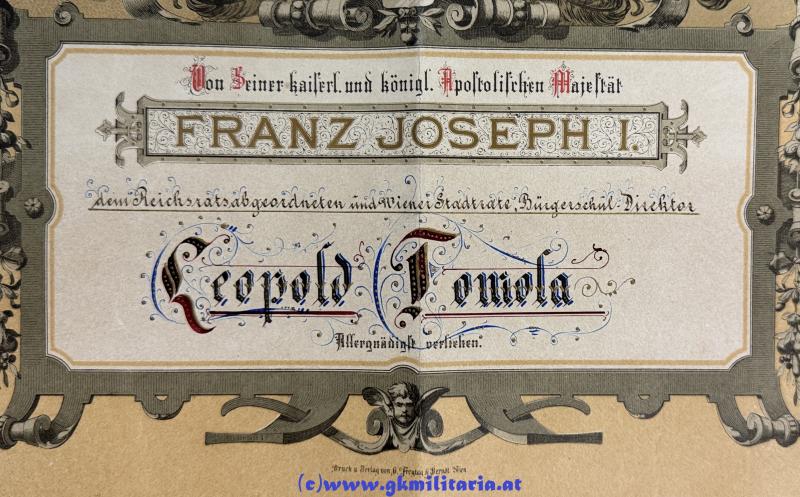 Von Seiner kaiserl. und königl. Apostolischen Majestät
FRANZ JOSEPH I.
dem Reichsratsabgeordneten und Wiener Stadtrate, Bürgerschul-Direktor
Leopold Tomola
Allergnädigst verliehen.
Druck u. Verlag von G. Freytag & Berndt Wien
(c)www.gkmilitaria.at